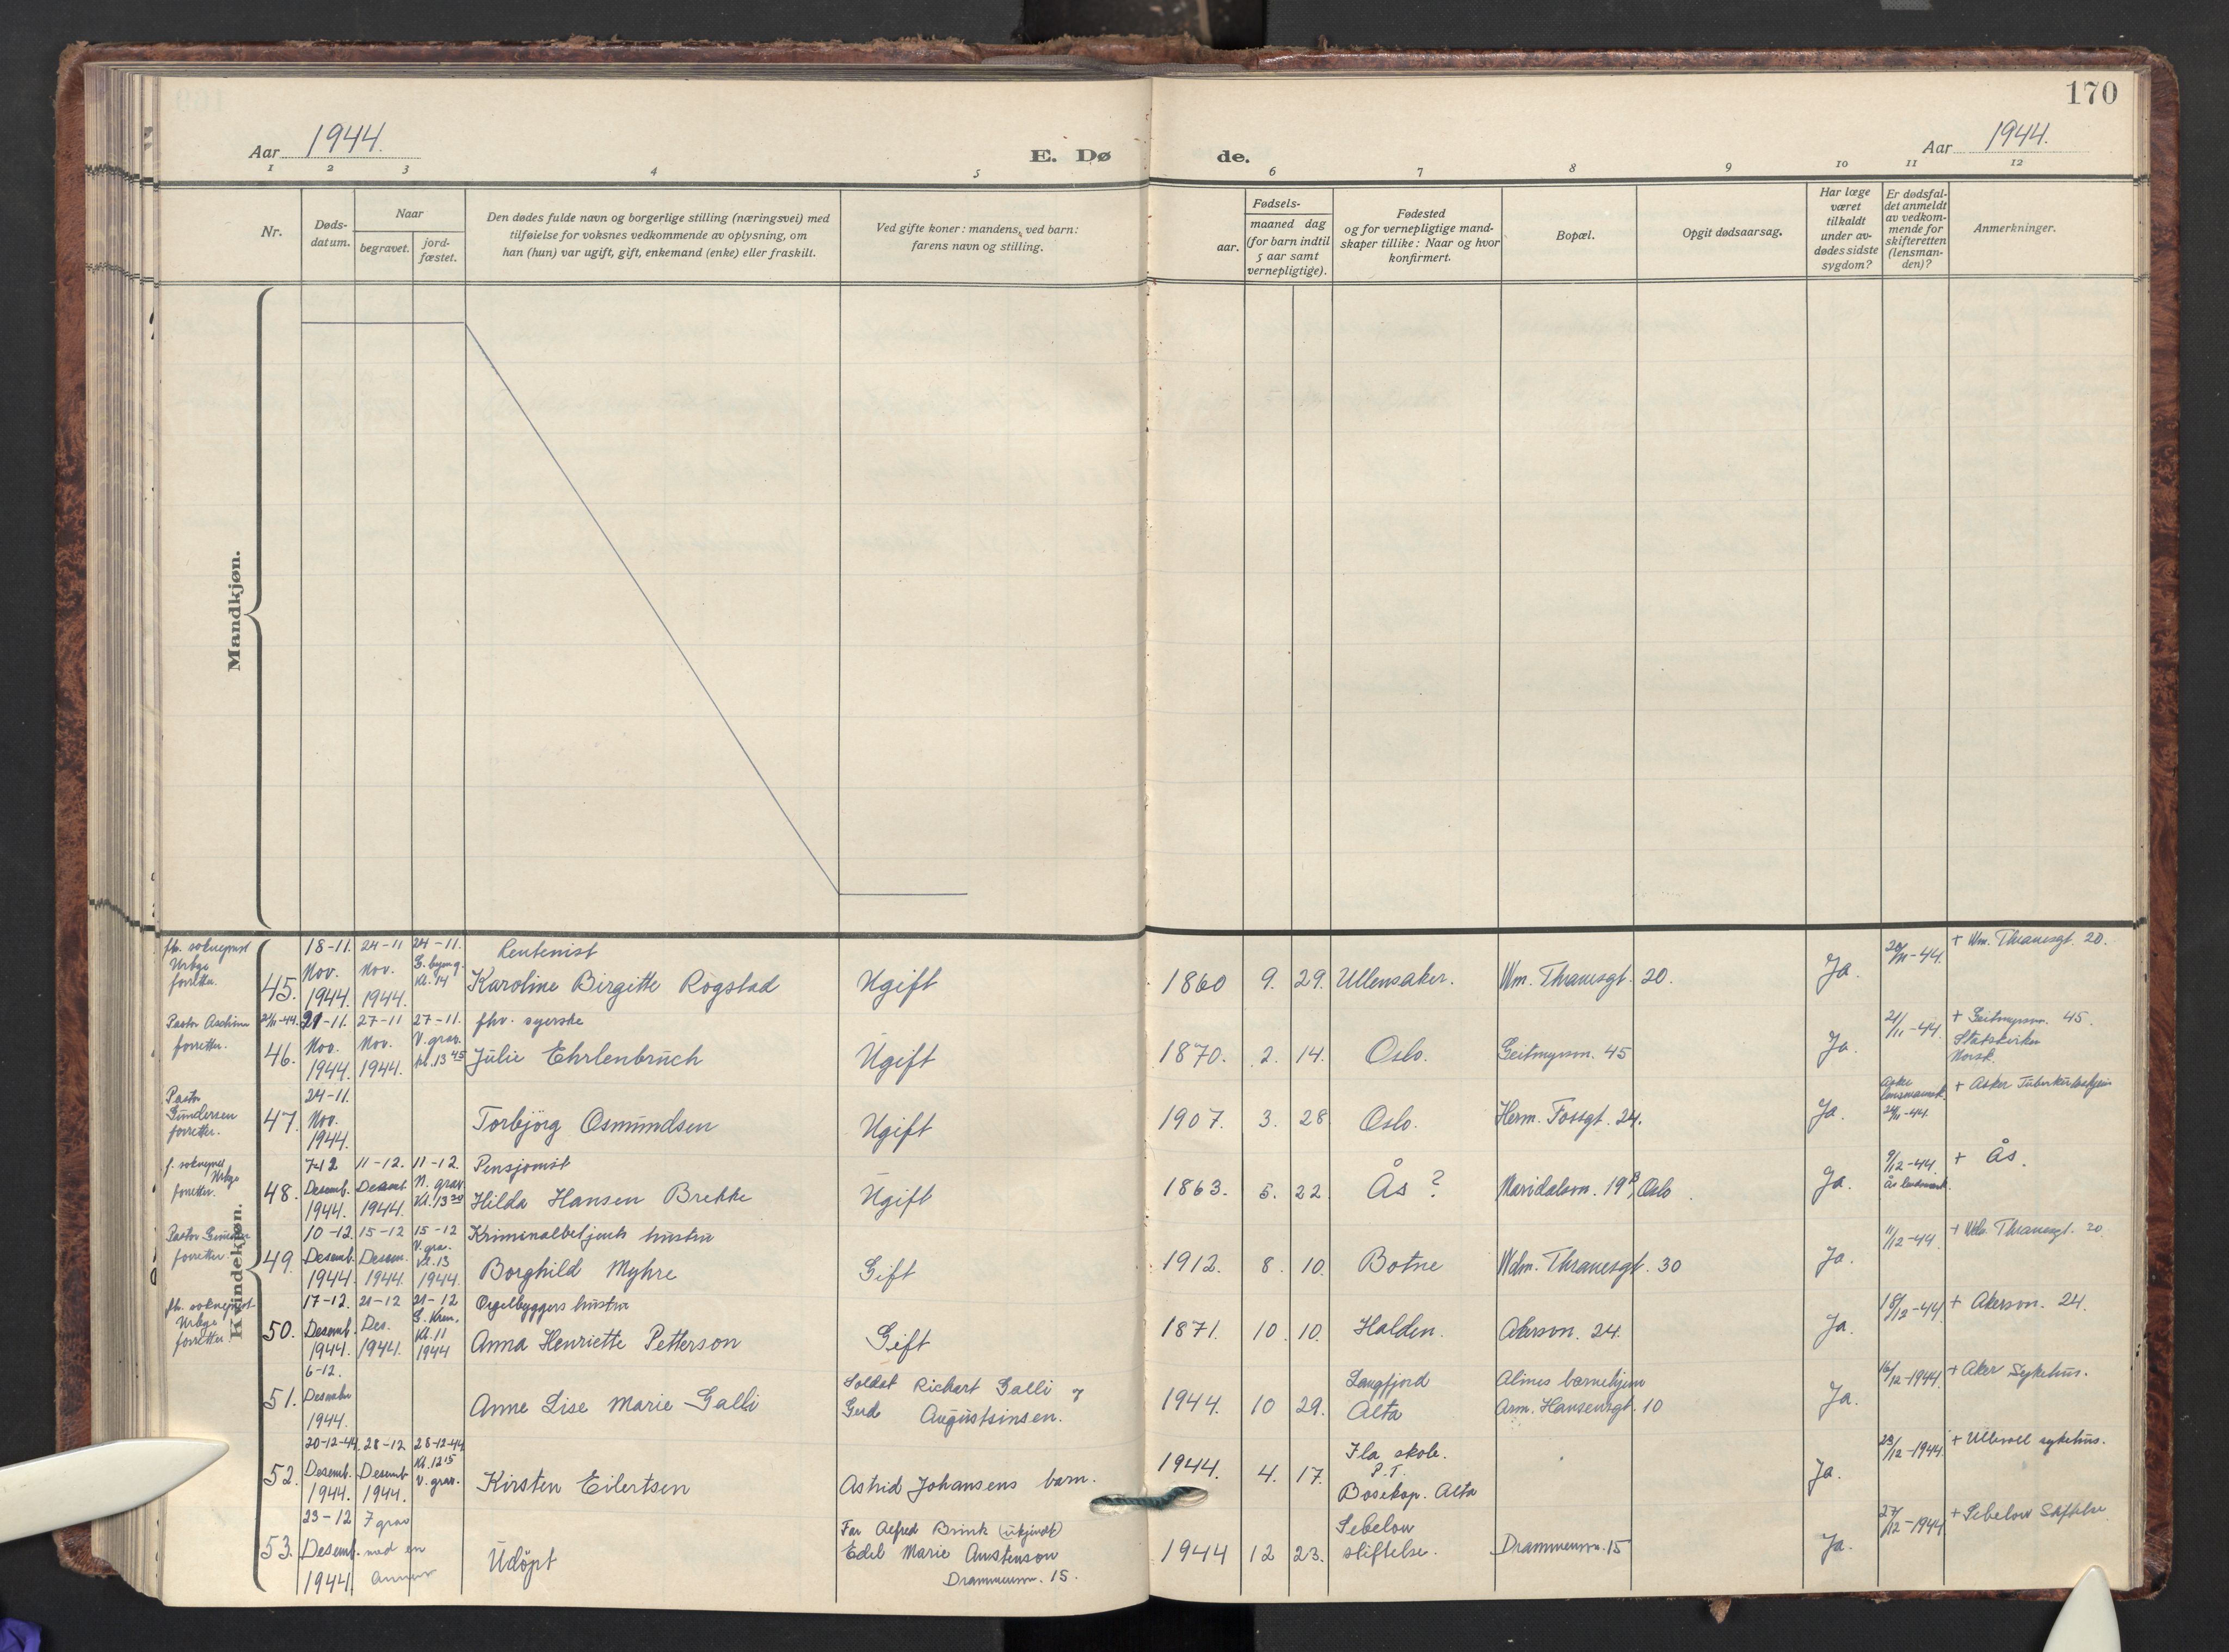 170
Aar 1944.
E. Dø
de.
Aar 1944.
1 2 3 4 5 6 7 8 9 10 11 12
Nr.
Døds-
datum.
Naar
begravet.
jord-
fæstet.
Den dødes fulde navn og borgerlige stilling (næringsvei) med
tilføielse for voksnes vedkommende av oplysning, om
han (hun) var ugift, gift, enkemand (enke) eller fraskilt.
Ved gifte koner: mandens, ved barn:
farens navn og stilling.
Fødsels-
aar.
maaned dag
(for barn indtil
5 aar samt
vernepligtige).
Fødested
og for vernepligtige mand-
skaper tillike: Naar og hvor
konfirmert.
Bopæl.
Opgit dødsaarsag.
Har læge
været
tilkaldt
under av-
dødes sidste
sygdom?
Er dødsfal-
det anmeldt
av vedkom-
mende for
skifteretten
(lensman-
den)?
Anmerkninger.
Mandkjøn.
Kvindekjøn.
fh. sokneprest
Urbye
forretter.
45.
18-11.
Nov.
1944.
24-11
Nov.
1944.
24-11.
Kl. 14
Rentenist
Karoline Birgitte Rogstad
Ugift
1860 9. 29. Ullensaker. Wm. Thranesgt. 20. Ja. 20/11-44. + Wm. Thranesgt. 20.
Pastor
forretter.
46.
21/11-44.
21-11.
Nov.
1944.
27-11
Nov.
1944.
27-11.
V. grav.
kl. 13 45
fhv. syerske
Julie Ehrlenbruch
Ugift
1870. 2. 14. Oslo. Geitmyrsvn. 45 Ja. 21/11-44 + Geitmyrsvn. 45.
Statskirken
Norsk.
Pastor
Gundersen
forretter.
47.
24-11.
Nov.
1944.
Torbjörg Osmundsen
Ugift
1907. 3. 28 Oslo. Herm. Fossgt. 24. Ja.
Asker
lensmannsk.
-44.
+ Asker Tuberkuloshjem
f. sokneprest
Urbye
forretter.
48.
7-12
Desemb.
1944.
11-12.
Desemb
1944.
11-12.
N. grav.
Kl. 13 30
Pensjonist
Hilda Hansen Brekke
Ugift
1863. 5. 22. Ås ? Maridalsvn. 19 B, Oslo. Ja. 9/12-44. + Ås.
Pastor
forretter.
49.
10-12
Desemb.
1944.
15-12
Desem.
1944.
15-12
V. grav.
kl. 13
1944.
Kriminalbetjents hustru
Borghild Myhre
Gift
1912. 8. 10. Botne Wdm. Thranesgt. 30 Ja. 11/12-44 + Wdm. Thranesgt. 30.
fh. sokneprest
Urbye
forretter.
50.
17-12.
Desemb.
1944.
21-12
Des.
1944.
21-12
G. Krem.
Kl. 11
1944
Orgelbyggers hustru
Anna Henriette Petterson
Gift
1871. 10. 10. Halden. Akersvn. 24. Ja. 18/12-44 + Akersvn. 24.
51.
6-12.
Desember
1944.
Anne Lise Marie Galli
Soldat Richart Galli
Gerd Augustsinsen.
1944. 10 29.
Langfjord
Alta
Almes barnehjem
Arm. Hansensgt. 10
Ja. 16/12-1944 + Aker Sykehus.
52.
20-12-44.
Desemb.
1944.
28-12
Desemb
1944.
28-12-44
Kl. 12 15
V. grav.
Kirsten Eilertsen
Astrid Johansens barn.
1944. 4. 17.
Ila skole.
P.T.
Bosekop. Alta
Ja. 23/12-1944. + Ullevoll sykehus.
53.
23-12
Desemb.
1944.
7 grav
med en
annen
Udöpt
Far Alfred Brink (ukjendt)
Edel Marie Austenson
Drammensvn. 15.
1944 12 23.
Sebelow
stiftelse.
Drammensvn. 15
Ja. 27/12-1944 + Sebelow Stiftelse